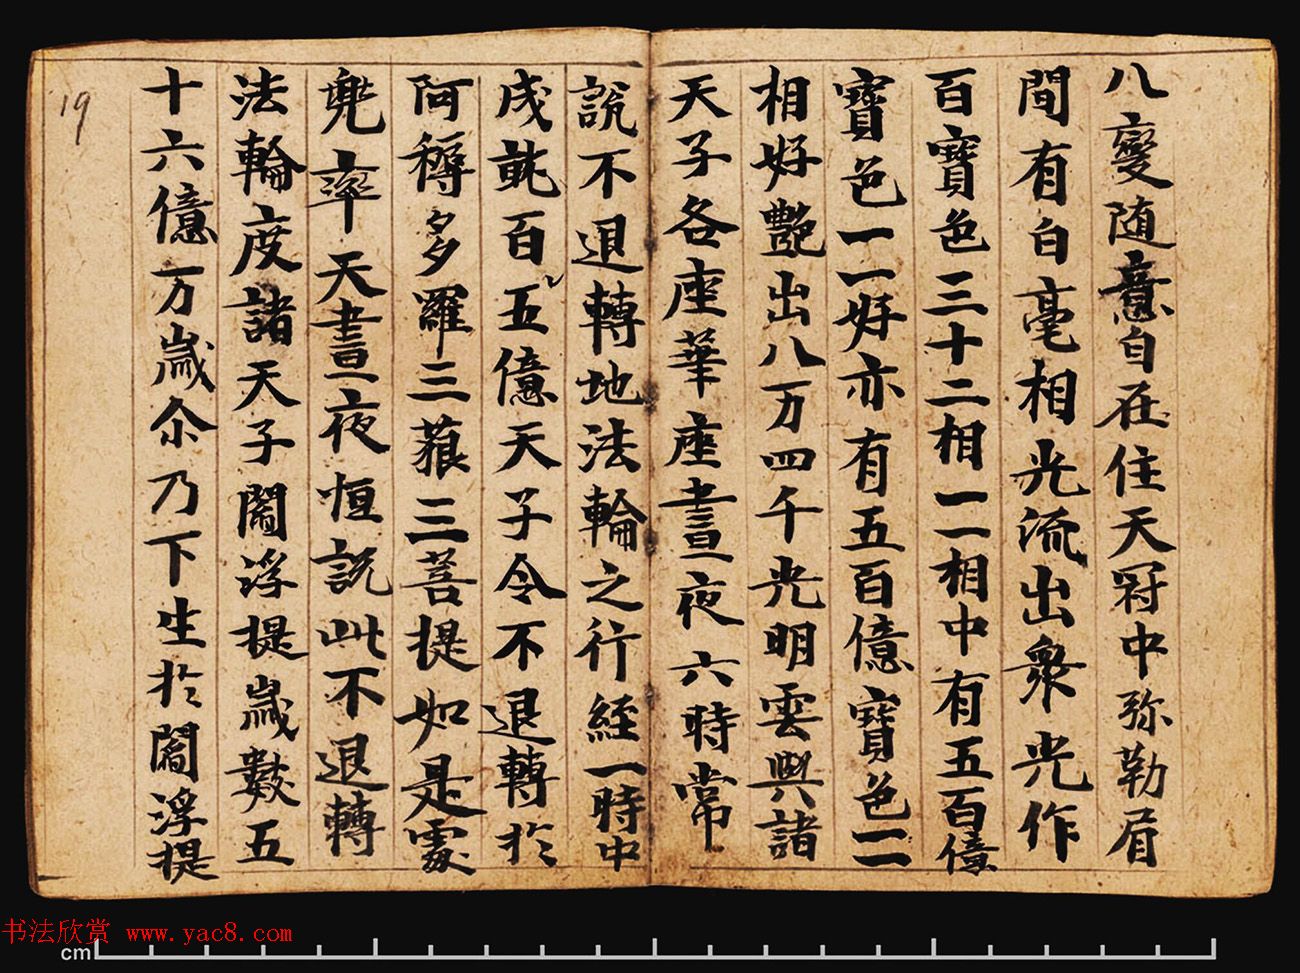 八變随意自在住天冠中弥勒眉
間有白毫相光流出衆光作
百寶色三十二相一一相中有五百億
寶色一一好亦有五百億寶色一一
相好艶出八万四千光明雲與諸
天子各座華座晝夜六時常
說不退轉地法輪之行經一時中
成就百五億天子令不退轉於
阿耨多羅三藐三菩提如是處
兜率天晝夜恒說此不退轉
法輪度諸天子閻浮提歲數五
十六億万歲尒乃下生於閻浮提
19
书法欣赏 www.yac8.com
cm